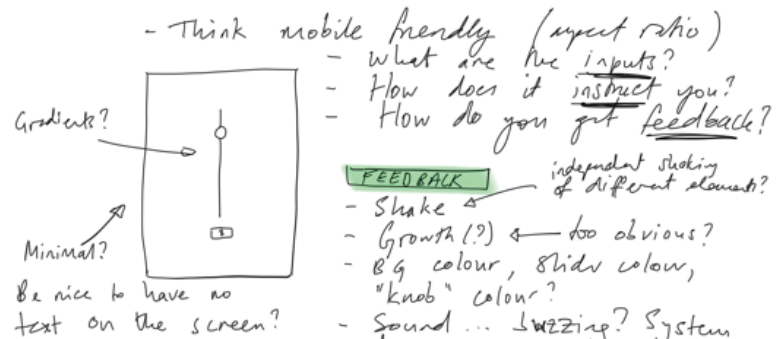 - Think mobile friendly (aspect ratio)
- What are the inputs?
- How does it instruct you?
- How do you get feedback?
Gradients?
Minimal?
Be nice to have no
text on the screen?
FEEDBACK
- Shake
independent shaking
of different elements?
- Growth(?)
too obvious?
- BG colour, slider colour,
"knob" colour?
- Sound... buzzing? System